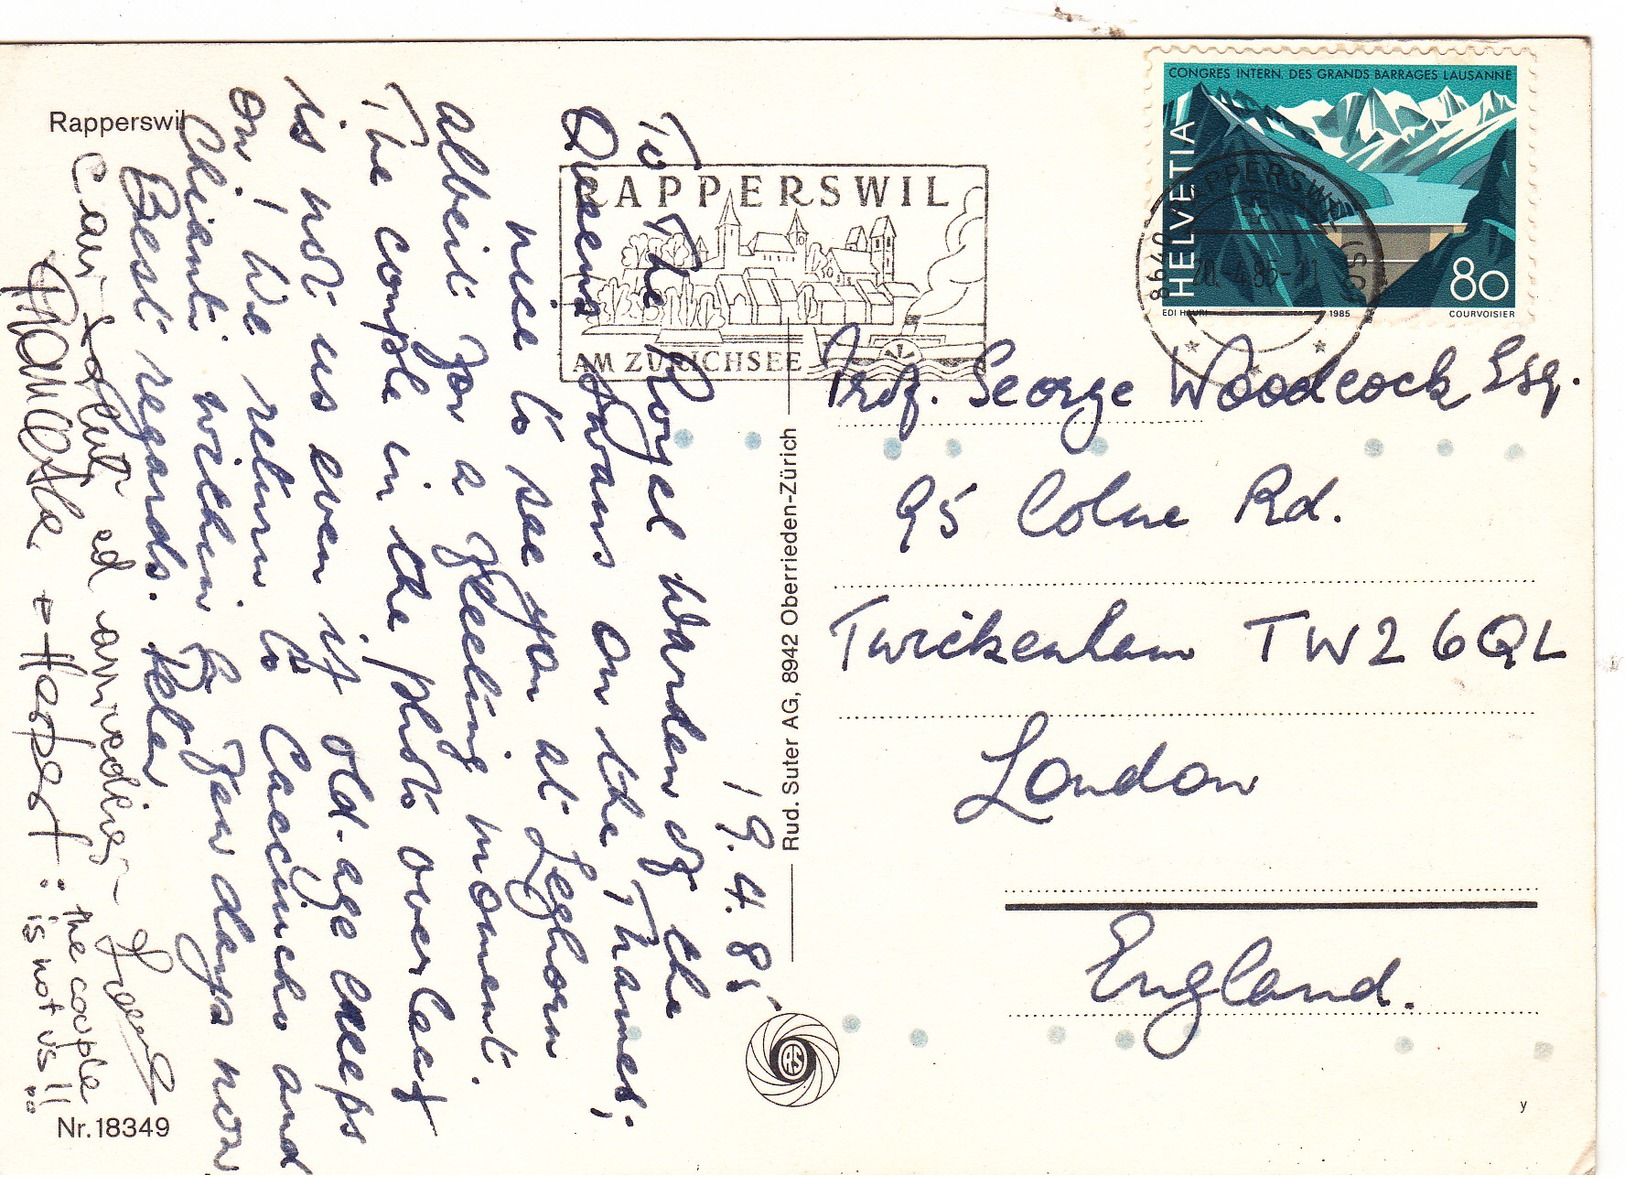 Rapperswil
19.4.85
To The Royal Warden of the
Queens Swans on the Thames;
nice to see you at Leghorn
albeit for a fleeting moment.
The couple in the photo overleaf
is not us even if old-age creeps
on! We return to Caecincho and
Chianti within a few days now
Best regards. Peter
Cari saluti ed arrivederci
+ Harpest : the couple
is not us!!
Nr. 18349
Rud. Suter AG, 8942 Oberrieden-Zürich
RAS
RAPPERSWIL
AM ZÜRICHSEE
CONGRES INTERN. DES GRANDS BARRAGES LAUSANNE
HELVETIA
80
EDI HAURI 1985 COURVOISIER
8640 RAPPERSWIL (SG)
20.-4.85-11
Prof. George Woodcock Esq.
95 Colne Rd.
Twickenham TW2 6QL
London
England.
y